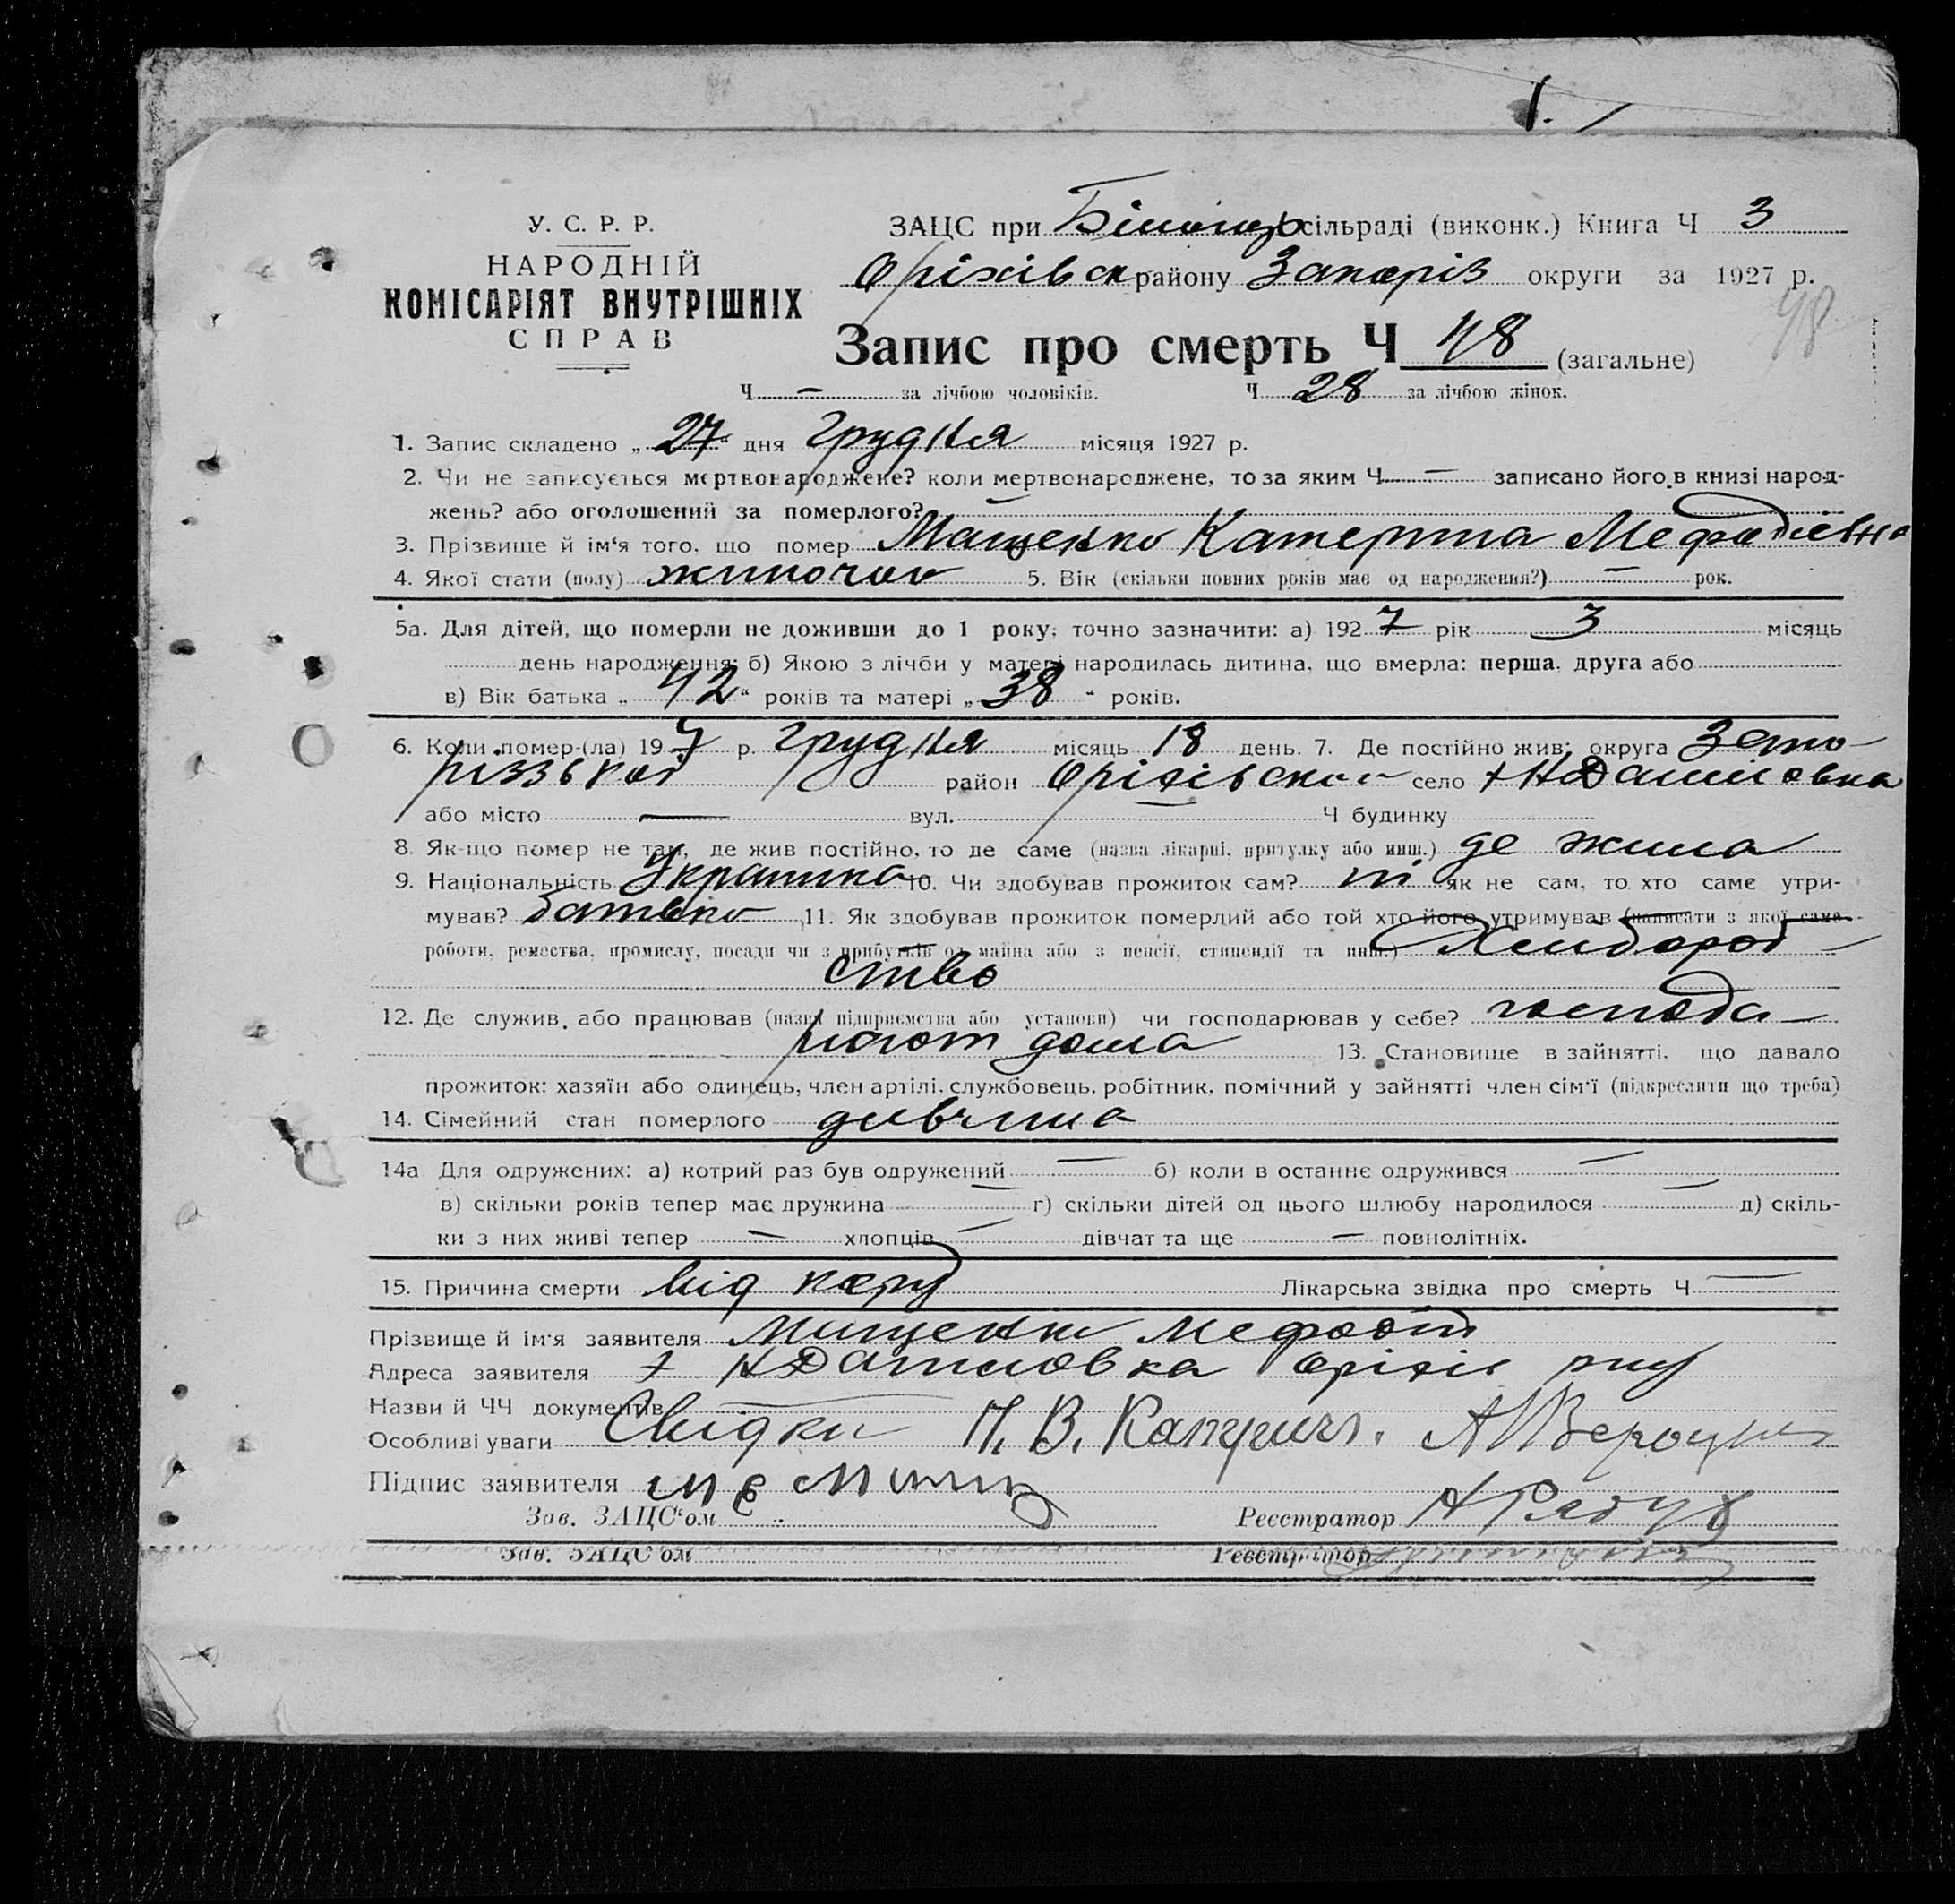 У. С. Р. Р.
НАРОДНІЙ
КОМІСАРІЯТ ВНУТРІШНІХ
СПРАВ
ЗАЦС при сільраді (виконк.) Книга Ч 3
Оріхівськ району Запоріз округи за 1927 р.
48
Запис про смерть Ч 48 (загальне)
Ч — за лічбою чоловіків. Ч 28 за лічбою жінок.
1. Запис складено „27“ дня грудня місяця 1927 р.
2. Чи не записується мертвонароджене? коли мертвонароджене, то за яким Ч — записано його в книзі народ-
жень? або оголошений за померлого? —
3. Прізвище й ім'я того, що помер Мащенко Катерина Мефодіевна
4. Якої стати (полу) жиночои 5. Вік (скільки повних років має од народження?) — рок.
5а. Для дітей, що померли не доживши до 1 року; точно зазначити: а) 1927 рік 3 місяць
день народження; б) Якою з лічби у матері народилась дитина, що вмерла: перша, друга або
в) Вік батька „42“ років та матері „38“ років.
6. Коли помер-(ла) 197 р. грудня місяць 18 день. 7. Де постійно жив: округа Запо-
різзькоі район Оріхівскои село х НДаниловка
або місто — вул. — Ч будинку
8. Як-що помер не там, де жив постійно, то де саме (назва лікарні, притулку або инш.) де жила
9. Національність Украинка 10. Чи здобував прожиток сам? ні як не сам, то хто саме утри-
мував? батько 11. Як здобував прожиток померлий або той хто його утримував (написати з якої саме
роботи, ремества, промислу, посади чи з прибутків од майна або з пенсії, стипендії та инш.) Хлибороб-
ство
12. Де служив, або працював (назва підприємства або установи) чи господарював у себе? господа-
рюют дома 13. Становище в зайнятті, що давало
прожиток: хазяїн або одинець, член артілі, службовець, робітник, помічний у зайнятті член сім'ї (підкреслити що треба)
14. Сімейний стан померлого дивчина
14а Для одружених: а) котрий раз був одружений — б) коли в останнє одружився —
в) скільки років тепер має дружина — г) скільки дітей од цього шлюбу народилося — д) скіль-
ки з них живі тепер — хлопців — дівчат та ще — повнолітніх.
15. Причина смерти від кору Лікарська звідка про смерть Ч —
Прізвище й ім'я заявителя Мищенко Мефодій
Адреса заявителя х НДаниловка Оріхів р-ну
Назви й ЧЧ документів —
Особливі уваги Свідки П. В.
Підпис заявителя
Зав. ЗАЦС'ом Реєстратор
Зав. ЗАЦС'ом Реєстратор